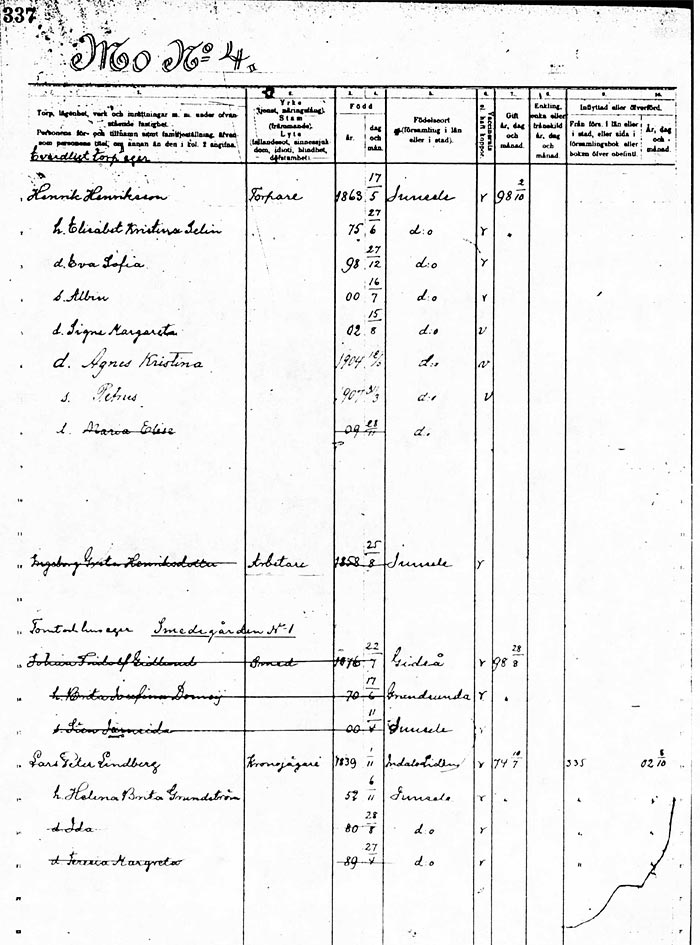 337
Mo No 4.
1. 2. 3. 4. 5. 6. 7. 8. 9. 10.
Torp, lägenhet, verk och inrättningar m. m. under ofvanstående fastighet.
Personens för- och tillnamn samt familjeställning, äfven som personens titel, om annan än den i kol. 2 angifna.
Yrke (tjenst, näringsfång). Stam (främmande). Lyte (fallandesot, sinnessjukdom, idioti, blindhet, döfstumhet)
Född
år. dag och mån.
Födelseort (församling i län eller i stad).
Gift år, dag och månad.
Enkling, enka eller frånskild år, dag och månad.
Inflyttad eller öfverförd.
Från förs. i län eller i stad, eller sida i församlingsbok eller boken öfver obefintl.
År, dag och månad.
torp eger
Henrik Henriksson Torpare 1863 17/5 Junsele v 98 2/10
h. Elisabet Kristina Selin 75 27/6 d:o v "
d. Eva Sofia 98 27/12 d:o v
s. Albin 00 16/7 d:o v
d. Signe Margareta 02 15/8 d:o v
d. Agnes Kristina 1904 d:o v
s. Petrus 1907 31/3 d:o v
Maria Elise 09 28/11 d.
Ingeborg Greta Henriksdotter Arbetare 1858 25/8 Junsele v
Tomt och huseger Smedsgården No 1
Fridolf Gidlund Smed 1876 22/7 Gideå v 98 28/8
h. Brita Josefina 70 17/6 v "
s. 00 11/4 Junsele v
Lars Peter Lindberg Kronojägare 1839 1/11 Indals-Liden v 74 10/7 335 02 8/10
h. Helena Brita Grundström 52 6/11 Junsele v " " "
d Ida 80 28/8 d:o v "
d Teresia Margreta 89 27/4 d:o v "